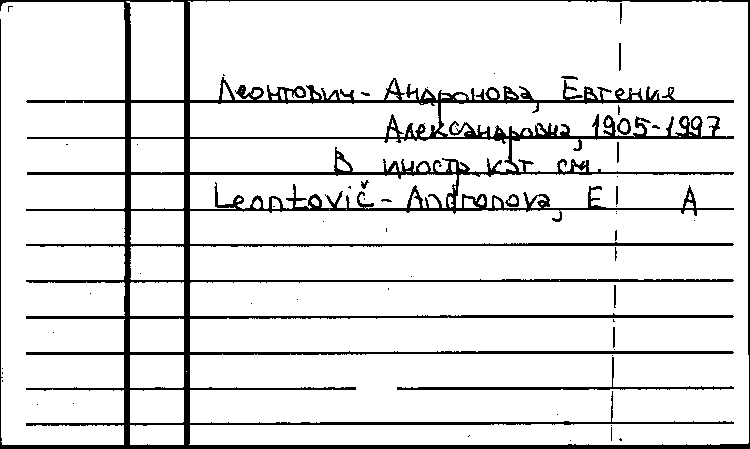 Леонтович - Андронова, Евгения
Александровна, 1905-1997
В иностр. кат. см.
Leontovič - Andronova, E A